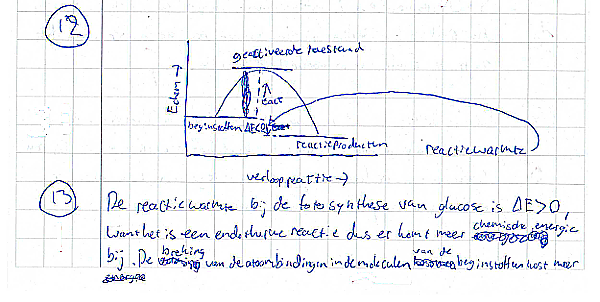 12
geactiveerde toestand
Echem →
Eact
beginstoffen ΔE<0
reactieproducten
reactiewarmte
verloop reactie →
13 De reactiewarmte bij de fotosynthese van glucose is ΔE>0,
want het is een endotherme reactie dus er komt meer chemische energie
bij. De breking van de atoombindingen in de moleculen van de beginstoffen kost meer
energie